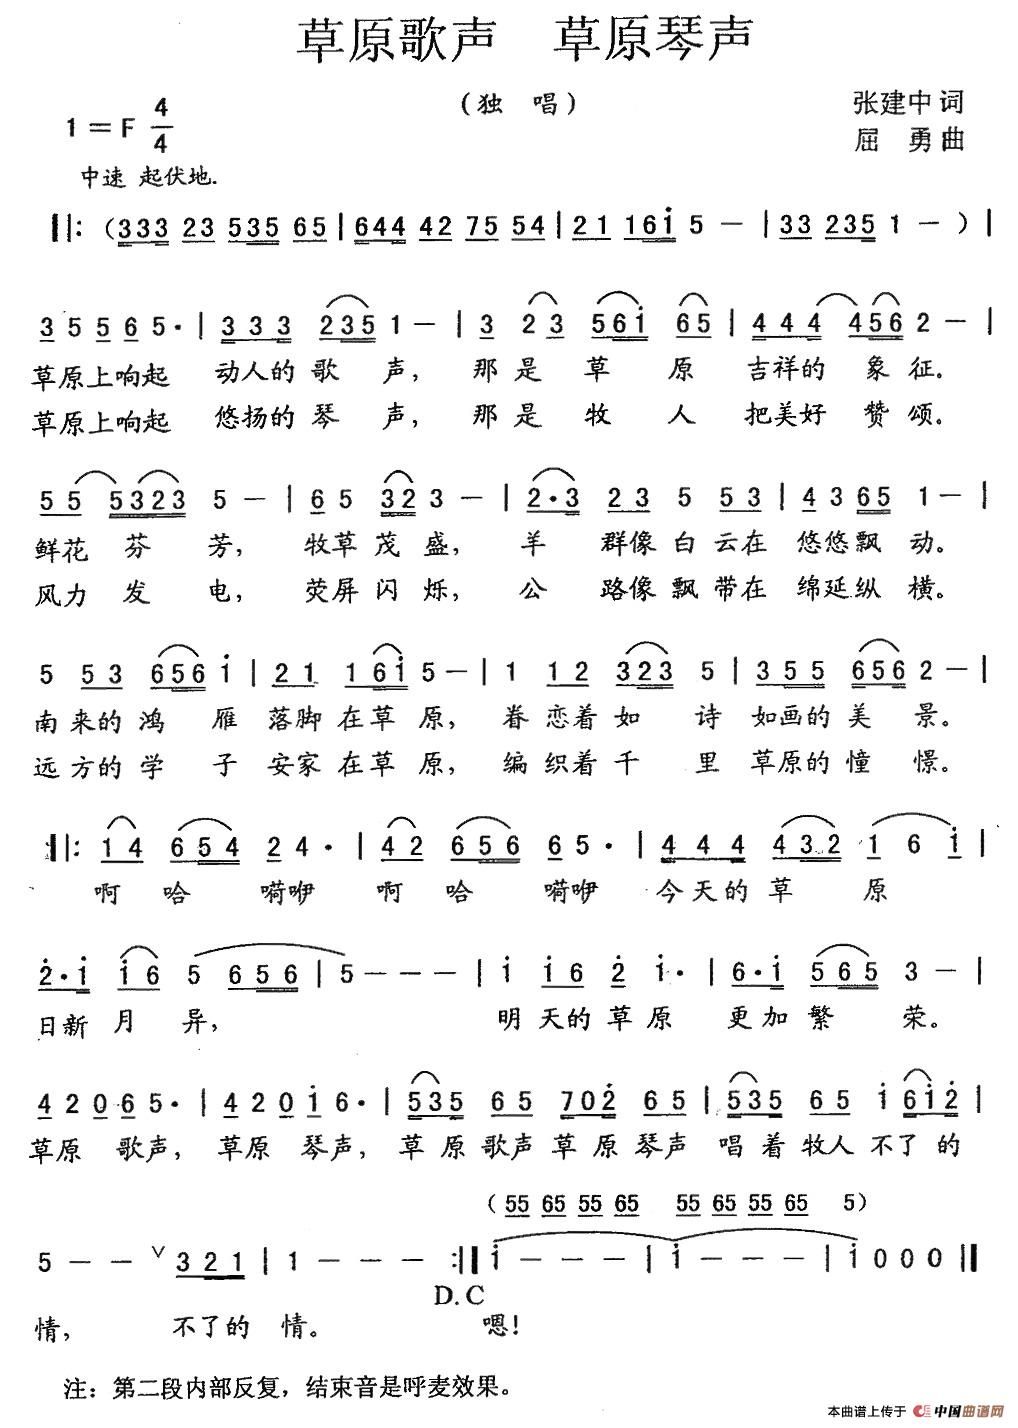 草原歌声 草原琴声
(独 唱)
张建中 词
屈 勇 曲
1=F 4/4
中速 起伏地.
‖:(333 23 535 65|644 42 75 54|21 161̇ 5 －|33 235 1 －)|
3 5 5 6 5·|3 3 3 235 1 －|3 2 3 561̇ 65|4 4 4 456 2 －|
草原上响起 动人的歌 声， 那是草 原 吉祥的 象 征。
草原上响起 悠扬的琴 声， 那是牧 人 把美好 赞 颂。
5 5 5323 5 －|6 5 32 3 －|2·3 23 5 53|4 3 65 1 －|
鲜花 芬 芳， 牧草茂 盛， 羊 群像白云在 悠悠飘 动。
风力 发 电， 荧屏闪 烁， 公 路像飘带在 绵延纵 横。
5 53 656 1̇|21 161̇ 5 －|1 12 323 5|355 656 2 －|
南来的鸿 雁 落脚在草 原， 眷恋着如 诗 如画的美 景。
远方的学 子 安家在草 原， 编织着千 里 草原的憧 憬。
:‖:14 654 2 4·|42 656 6 5·|4 4 4 432 1 6 1̇|
啊 哈 嗬咿 啊 哈 嗬咿 今天的草 原
2̇·1̇ 1̇6 5 656|5 － － －|1̇ 1̇6 2̇ 1̇·|6·1̇ 565 3 －|
日新 月 异， 明天的草原 更加繁 荣。
4 2 0 6 5·|4 2 0 1̇ 6·|535 65 702̇ 65|535 65 1̇ 61̇2̇|
草原 歌声， 草原 琴声， 草原歌声草原琴声 唱着牧人不了的
(55 65 55 65 55 65 55 65 5)
5 － － ∨ 321|1 － － － :‖1̇ － － －|1̇ － － －|1̇ 0 0 0‖
D.C
情， 不了的 情。 嗯!
注：第二段内部反复，结束音是呼麦效果。
本曲谱上传于 中国曲谱网